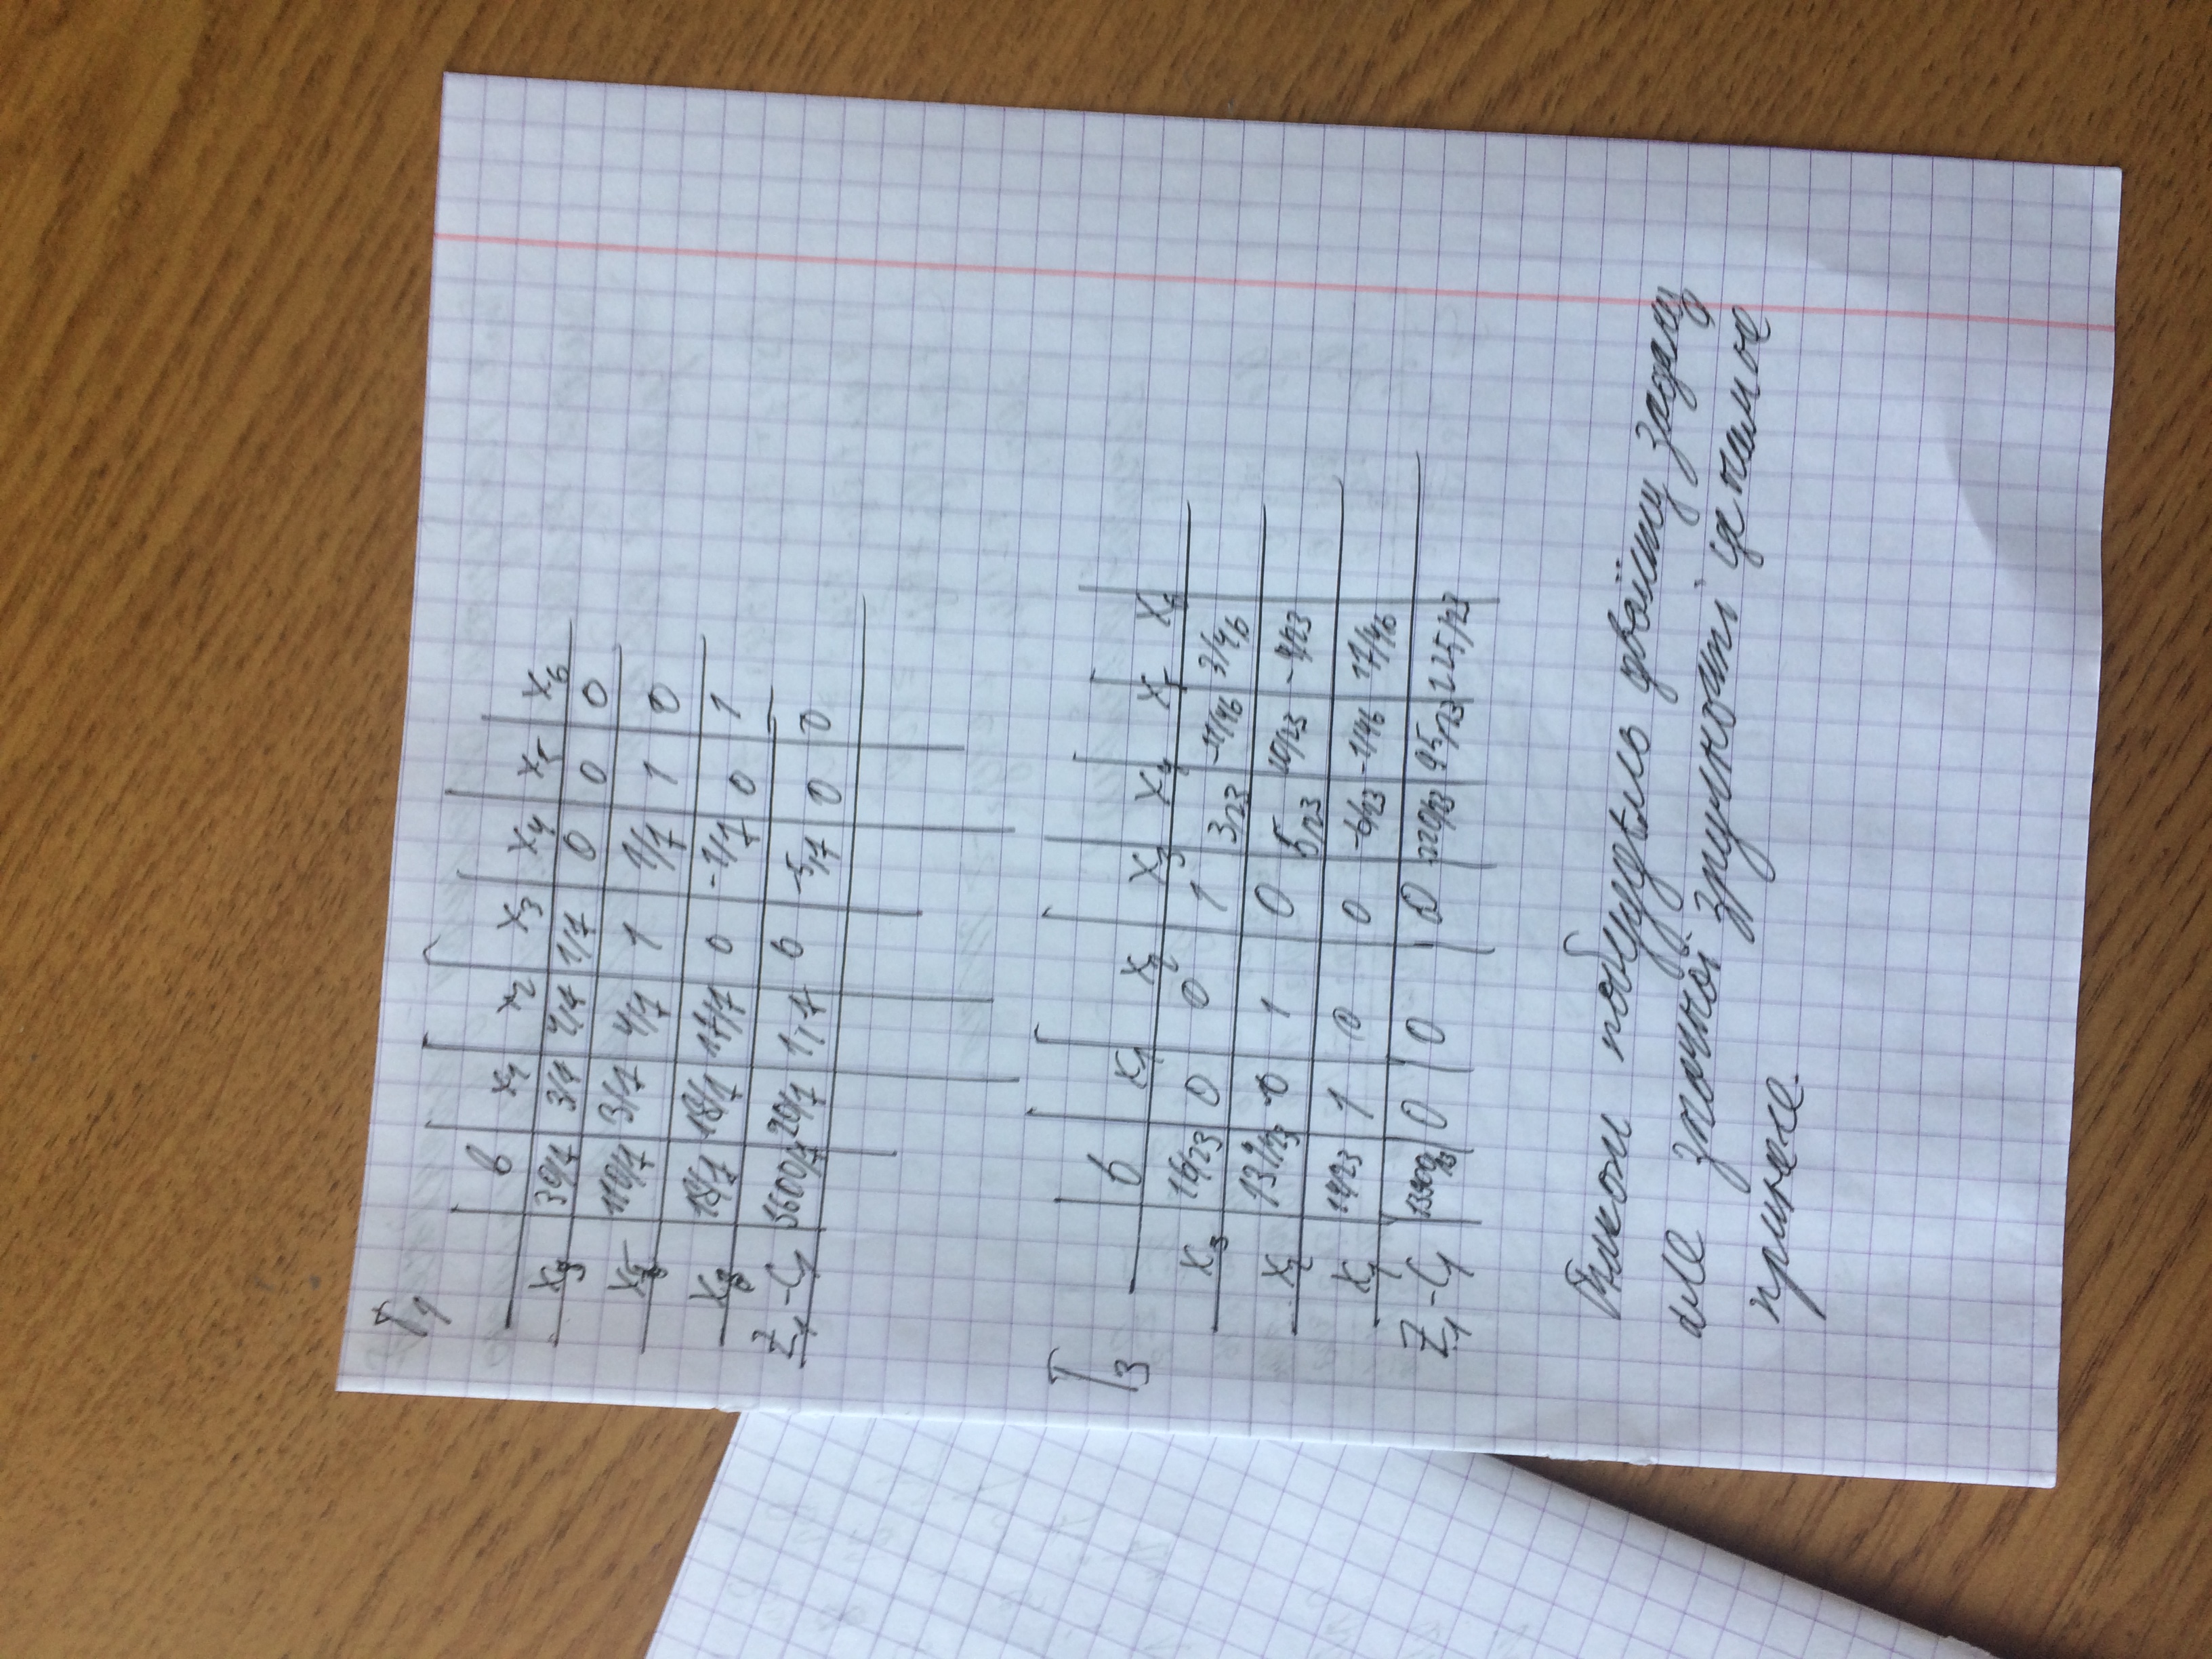 T₁
b x₁ x₂ x₃ x₄ x₅ x₆
x₃ 30/7 3/7 4/7 1/7 0 0 0
x₅ 110/7 31/7 4/7 1 1/7 1 0
18/7 18/7 17/7 0 -1/7 0 1
Z₁-C₁ 3600/7 20/7 0 -5/7 0 0
T₃
b x₁ x₂ x₃ x₄ x₅ x₆
x₃ 16/23 0 0 1 3/23 -11/46 3/46
x₂ 0 1 0 5/23 10/23 -9/23
x₁ 14/23 1 0 0 -6/23 -1/46 17/46
Z₁-C₁ 13900/23 0 0 0 220/23 95/23 225/23
Також побудуємо двоїсту задачу
але значної зручності це нам не
принесе.